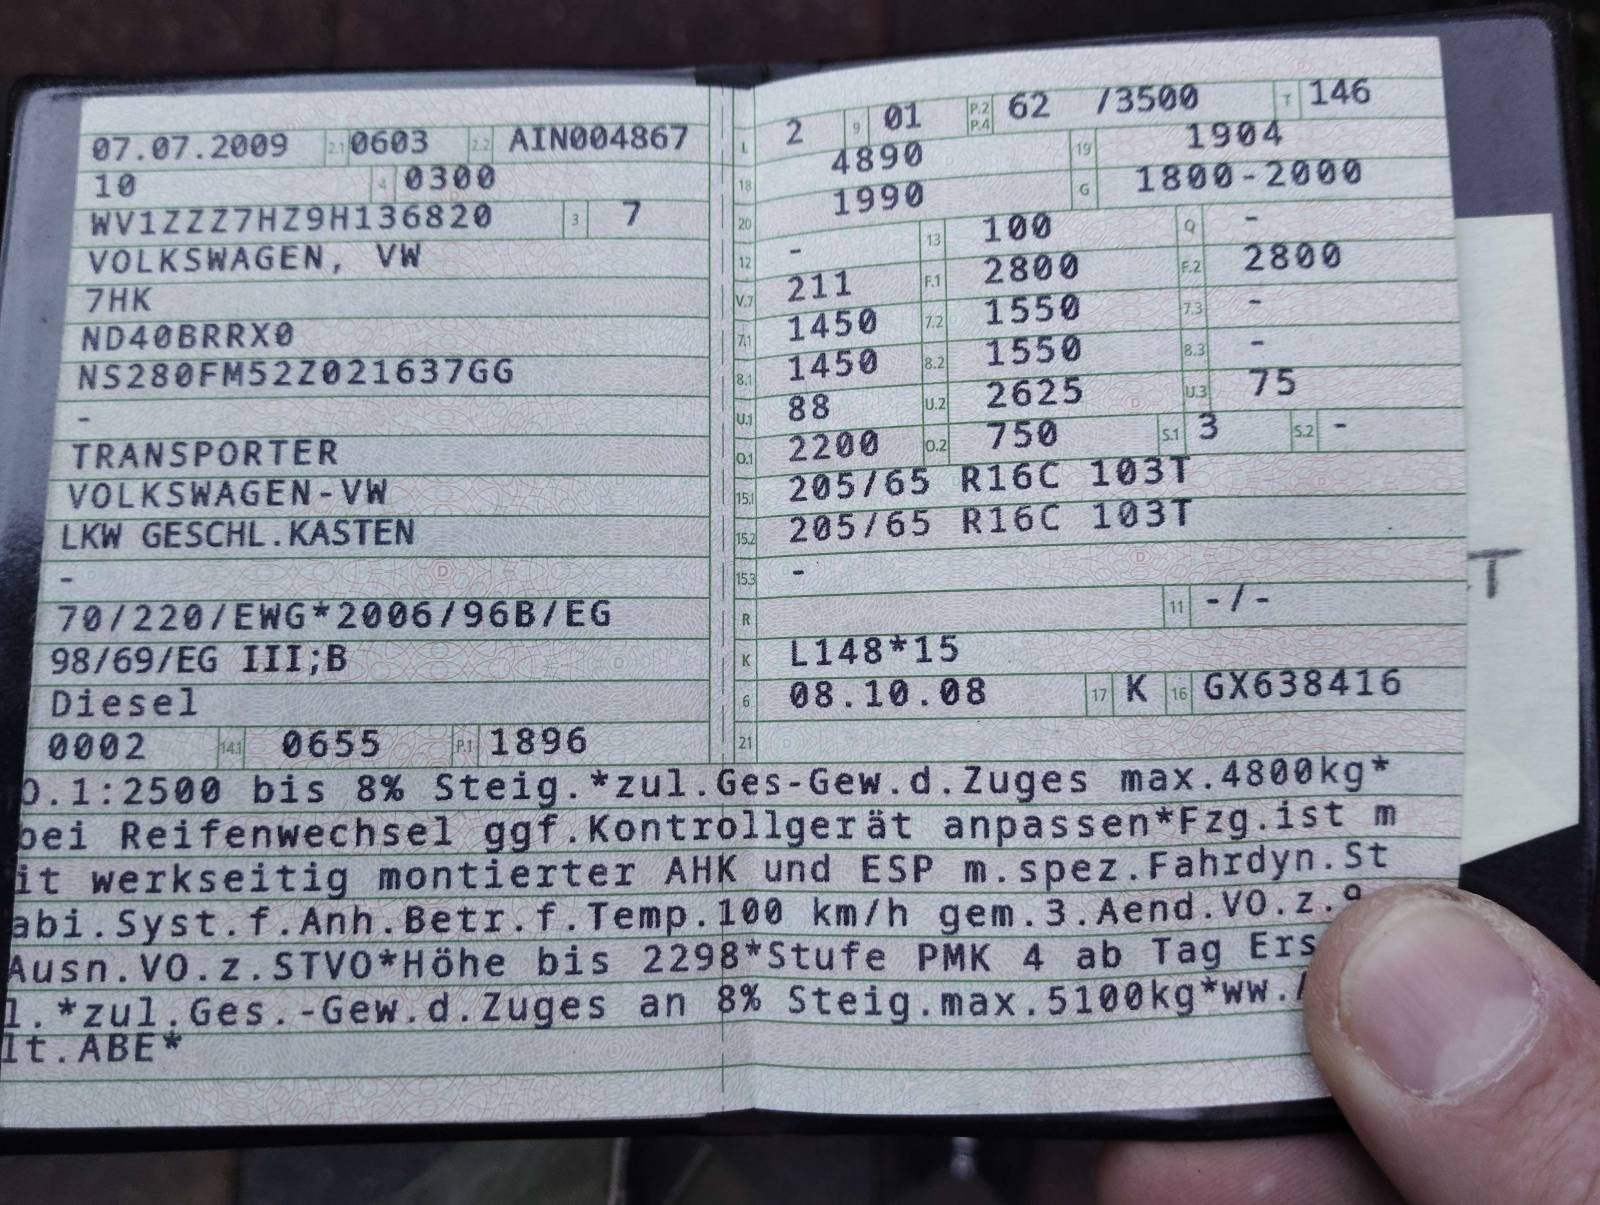 07.07.2009 2.1 0603 2.2 AIN004867
10 4 0300
WV1ZZZ7HZ9H136820 3 7
VOLKSWAGEN, VW
7HK
ND40BRRX0
NS280FM52Z021637GG
-
TRANSPORTER
VOLKSWAGEN-VW
LKW GESCHL.KASTEN
-
70/220/EWG*2006/96B/EG
98/69/EG III;B
Diesel
0002 14.1 0655 P.1 1896
L 2 9 01 P.2 P.4 62 /3500 T 146
18 4890 19 1904
20 1990 G 1800-2000
12 - 13 100 Q -
V.7 211 F.1 2800 F.2 2800
7.1 1450 7.2 1550 7.3 -
8.1 1450 8.2 1550 8.3 -
U.1 88 U.2 2625 U.3 75
O.1 2200 O.2 750 S.1 3 S.2 -
15.1 205/65 R16C 103T
15.2 205/65 R16C 103T
15.3 -
R 11 -/-
K L148*15
6 08.10.08 17 K 16 GX638416
21
O.1:2500 bis 8% Steig.*zul.Ges-Gew.d.Zuges max.4800kg*
bei Reifenwechsel ggf.Kontrollgerät anpassen*Fzg.ist m
it werkseitig montierter AHK und ESP m.spez.Fahrdyn.St
abi.Syst.f.Anh.Betr.f.Temp.100 km/h gem.3.Aend.VO.z.9
Ausn.VO.z.STVO*Höhe bis 2298*Stufe PMK 4 ab Tag Ers
l.*zul.Ges.-Gew.d.Zuges an 8% Steig.max.5100kg*ww.
lt.ABE*